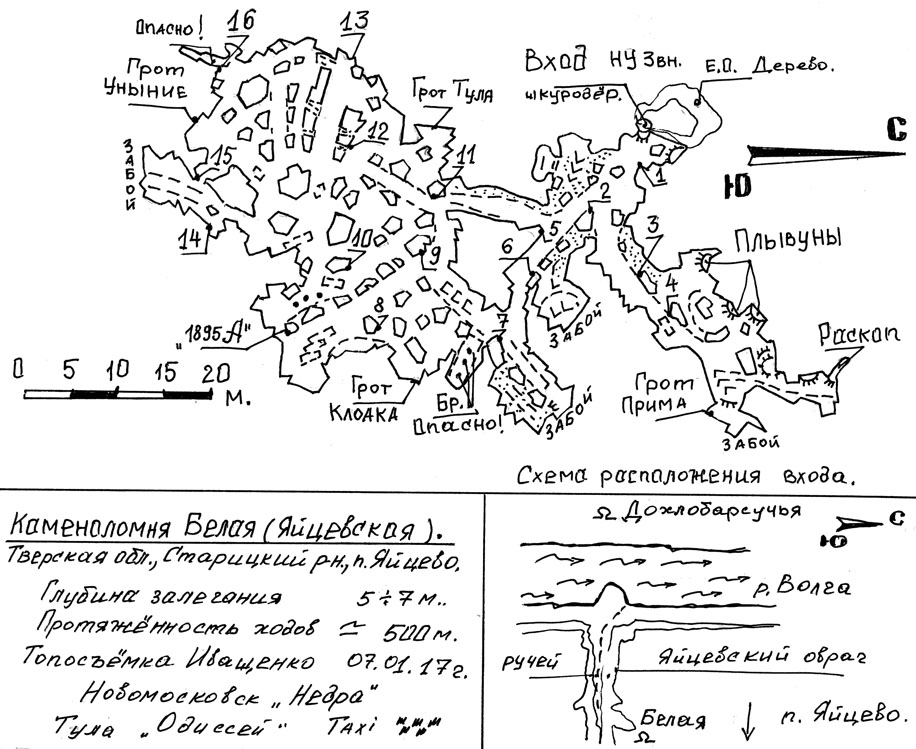 Опасно!
16
13
Грот
Уныние
Грот Тула
Вход
НУЗвн.
шкуровёр.
Е.О. Дерево.
С
Ю
12
11
ЗАБОЙ
15
14
1
2
3
4
5
6
7
8
9
10
Плывуны
ЗАБОЙ
„1895-А"
0 5 10 15 20
М.
Грот
Клоака
Бр.
Опасно!
ЗАБОЙ
Грот
Прима
Раскоп
ЗАБОЙ
Схема расположения входа.
Каменоломня Белая (Яйцевская).
Тверская обл., Старицкий р-н, п. Яйцево.
Глубина залегания 5÷7 м..
Протяжённость ходов ≃ 500 м.
Топосъёмка Иващенко 07.01.17г.
Новомосковск „Недра"
Тула „Одиссей" Taxi
Ω Дохлобарсучья
С
Ю
р. Волга
ручей
Яйцевский овраг
Белая
Ω
п. Яйцево.